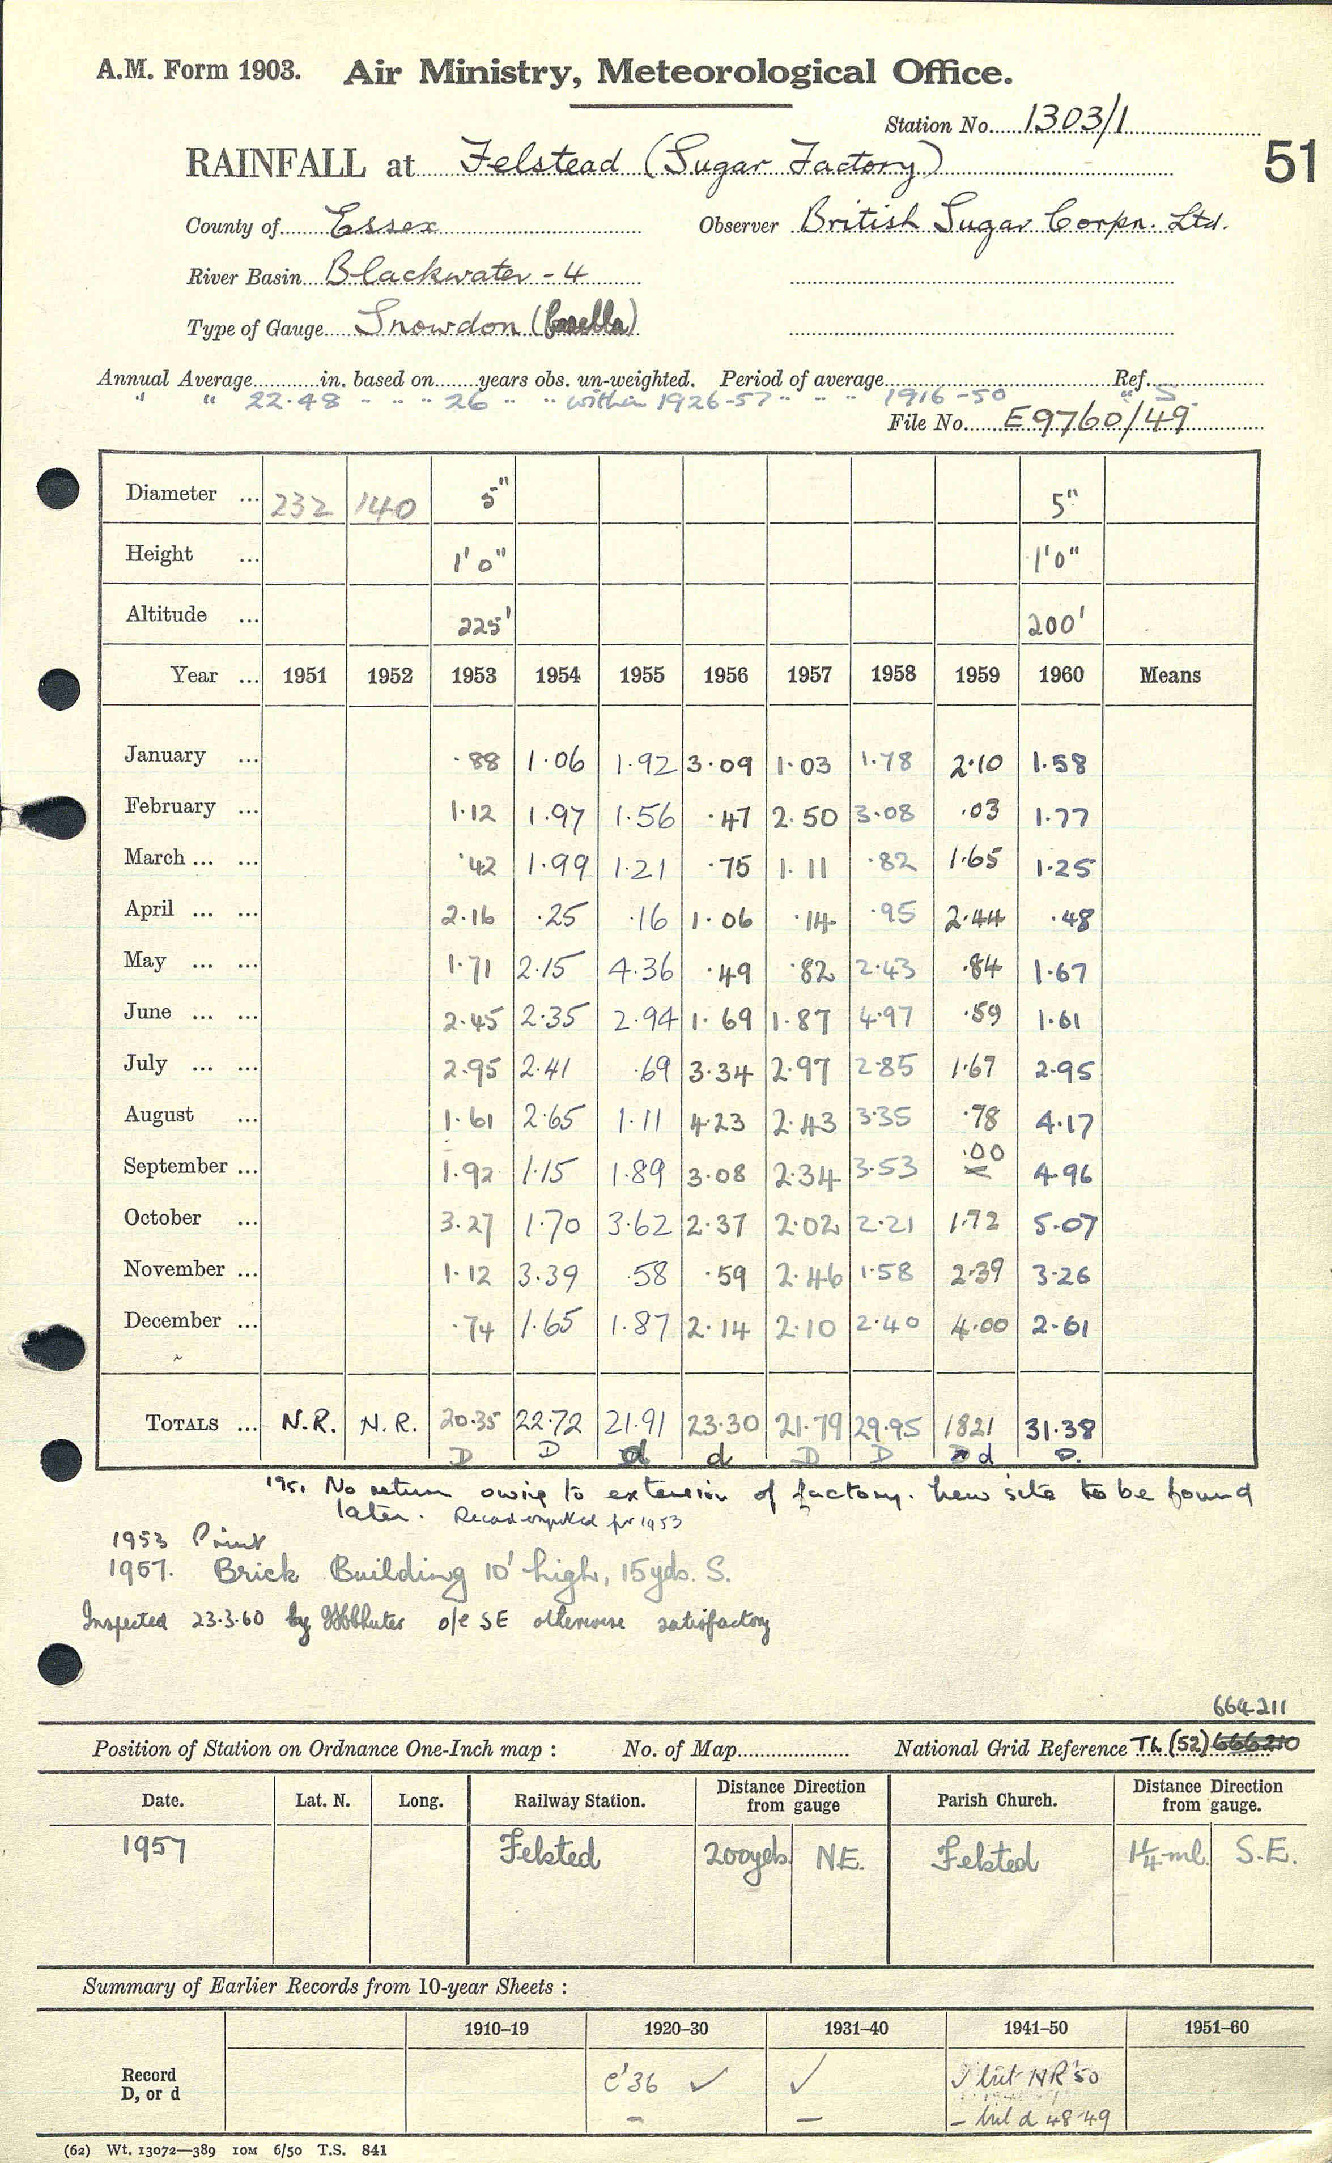 A.M. Form 1903. Air Ministry, Meteorological Office.
Station No. 1303/1
51
RAINFALL at Felstead (Sugar Factory)
County of Essex Observer British Sugar Corpn. Ltd.
River Basin Blackwater - 4
Type of Gauge Snowdon (Casella)
Annual Average in. based on years obs. un-weighted. Period of average Ref.
" " 22.48 " " " 26 " " within 1926-57 " " " 1916-50 " S.
File No. E9760/49
Diameter ... 232 140 5" 5"
Height ... 1'0" 1'0"
Altitude ... 225' 200'
Year ... 1951 1952 1953 1954 1955 1956 1957 1958 1959 1960 Means
January ... .88 1.06 1.92 3.09 1.03 1.78 2.10 1.58
February ... 1.12 1.97 1.56 .47 2.50 3.08 .03 1.77
March ... ... .42 1.99 1.21 .75 1.11 .82 1.65 1.25
April ... ... 2.16 .25 .16 1.06 .14 .95 2.44 .48
May ... ... 1.71 2.15 4.36 .49 .82 2.43 .84 1.67
June ... ... 2.45 2.35 2.94 1.69 1.87 4.97 .59 1.61
July ... ... 2.95 2.41 .69 3.34 2.97 2.85 1.67 2.95
August ... 1.61 2.65 1.11 4.23 2.43 3.35 .78 4.17
September ... 1.92 1.15 1.89 3.08 2.34 3.53 .00 4.96
October ... 3.27 1.70 3.62 2.37 2.02 2.21 1.72 5.07
November ... 1.12 3.39 .58 .59 2.46 1.58 2.39 3.26
December ... .74 1.65 1.87 2.14 2.10 2.40 4.00 2.61
TOTALS ... N.R. N.R. 20.35 22.72 21.91 23.30 21.79 29.95 1821 31.38
D D d d D D d D.
1951 No return owing to extension of factory. New site to be found
later. Record for 1953
1953 Print
1957. Brick Building 10' high, 15yds. S.
Inspected 23.3.60 by o/e SE otherwise satisfactory
664211
Position of Station on Ordnance One-Inch map : No. of Map National Grid Reference TL (52) 666210
Date. Lat. N. Long. Railway Station. Distance from gauge Direction Parish Church. Distance from gauge. Direction
1957 Felsted 200yds. NE. Felsted 1¼ ml. S.E.
Summary of Earlier Records from 10-year Sheets :
1910–19 1920–30 1931–40 1941–50 1951–60
Record c'36 ✓ ✓ ✓ but NR '50
D, or d – – – but d 48-49
(62) Wt. 13072—389 10M 6/50 T.S. 841